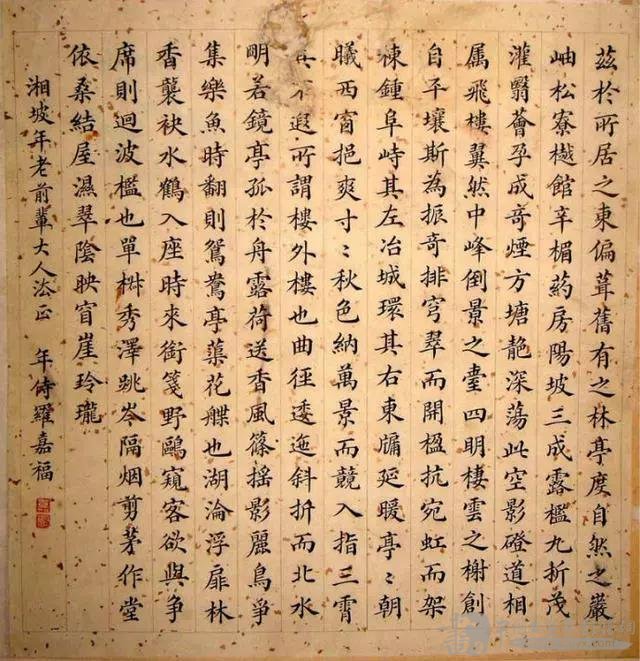 茲於所居之東偏葺舊有之林亭度自然之巖
岫松寮檖館辛楣药房陽坡三成露檻九折茂
灌翳薈孕成奇煙方塘靘深蕩此空影磴道相
属飛樓翼然中峰倒景之臺四明棲雲之榭創
自平壤斯為振奇排穹翠而開楹抗宛虹而架
棟鍾阜峙其左冶城環其右東牖延暖亭〻朝
曦西窗挹爽寸〻秋色納萬景而競入指三霄
不遐所謂樓外樓也曲徑逶迤斜折而北水
明若鏡亭孤於舟露荷送香風篠摇影麗鳥爭
集樂魚時翻則鴛鴦亭蕖花艓也湖淪浮扉林
香襲袂水鶴入座時來銜箋野鷗窺客欲與争
席則迴波檻也單椒秀澤跳岑隔烟剪茅作堂
依桑結屋濕翠陰映窅崖玲瓏
湘坡年老前輩大人法正 年侍羅嘉福